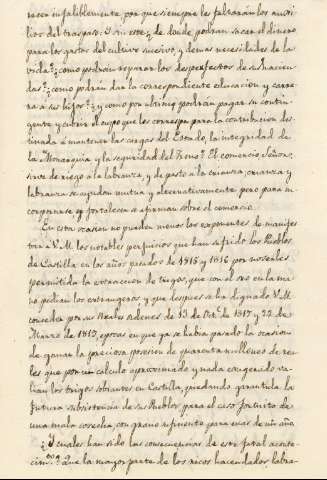 recer infaliblemente, por que siempre les faltarán los auxi-
lios del traspaso. Y en este, ¿de donde podran sacar el dinero
para los gastos del cultivo sucesivo y demas necesidades de la
vida? ¿como podrán reparar los desperfectos de sus hacien-
das? ¿como podran dar la correspondiente educacion y carre-
ra á sus hijos? ¿y como por ultimo podrán pagar su contin-
gente y cubrir el cupo que les corresponda para la contribucion des-
tinada á mantener las cargas del Estado, la integridad de
la Monarquia y la seguridad del Trono? El comercio Señor,
sirve de riego á la labranza, y de pasto á la crianza; crianza y
labranza se ayudan mutua y alternativamente pero para in-
corporarse y fortalecerse afirman sobre el comercio.
En esta ocasion no pueden menos los exponentes de manifes-
tar á V.M. los notables perjuicios que han sufrido los Pueblos
de Castilla en los años pasados de 1815 y 1816 por no serles
permitida la extraccion de trigos, que con el oro en la ma-
no pedian los extrangeros, y que despues se ha dignado V.M.
conceder por sus Reales ordenes de 13 de Oct.e de 1817 y 22 de
Marzo de 1819, epocas en que ya se habia pasado la ocasion
de ganar la preciosa posesion de quarenta millones de rea-
les que por un calculo aproximado y nada exagerado va-
lian los trigos sobrantes en Castilla, quedando garantida la
futura subsistencia de sus Pueblos para el caso fortuito de
una mala cosecha, con grano suficiente para mas de un año.
¿Y cuales han sido las consecuencias de este fatal aconte-
cim.to? Que la mayor parte de los ricos hacendados labra-